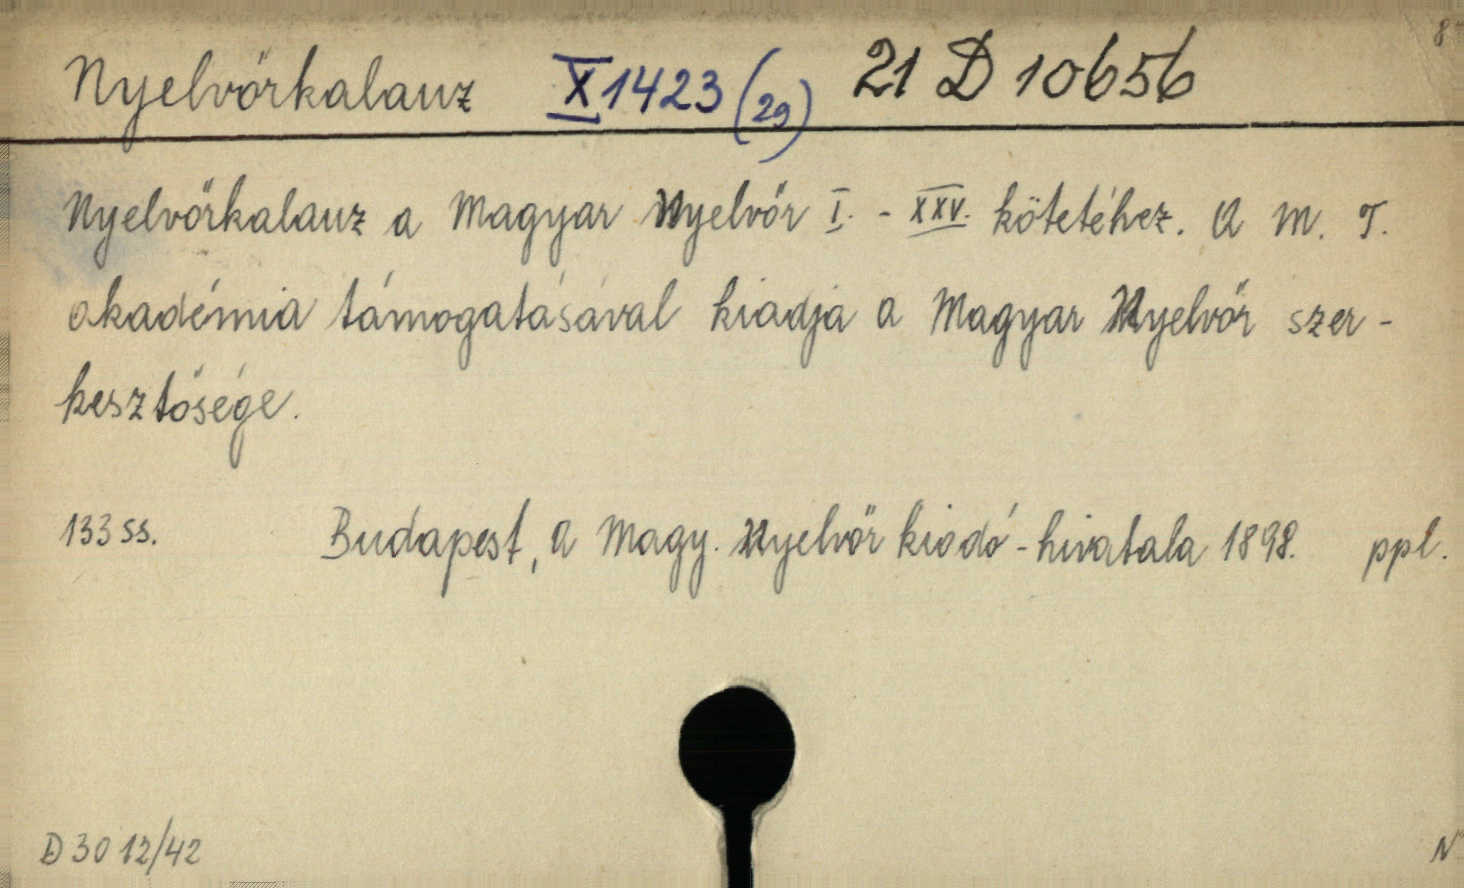 Nyelvőrkalauz X 1423 (29) 21 D 10656
Nyelvőrkalauz a Magyar Nyelvőr I. - XXV. kötetéhez. A M. T.
akadémia támogatásával kiadja a Magyar Nyelvőr szer-
kesztősége.
133 ss. Budapest, A Magy. Nyelvőr kiadó-hivatala 1898. ppl.
D 30 12/42